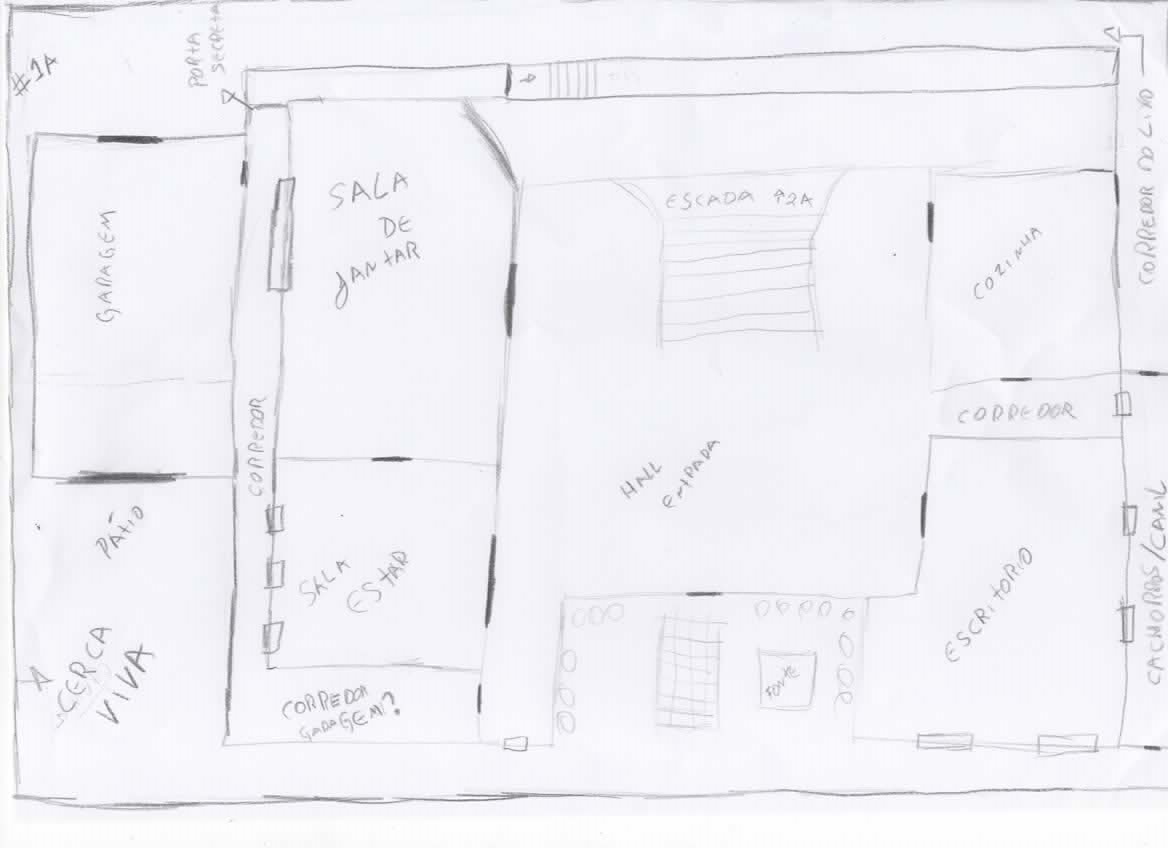 #1A
PORTA
SECRETA
GARAGEM
SALA
DE
JANTAR
ESCADA
COZINHA
CORREDOR DO LIXO
CORREDOR
CORREDOR
HALL
ENTRADA
PÁTIO
SALA
ESTAR
ESCRITORIO
CACHORROS/CANIL
CERCA
VIVA
CORREDOR
GARAGEM?
FONTE